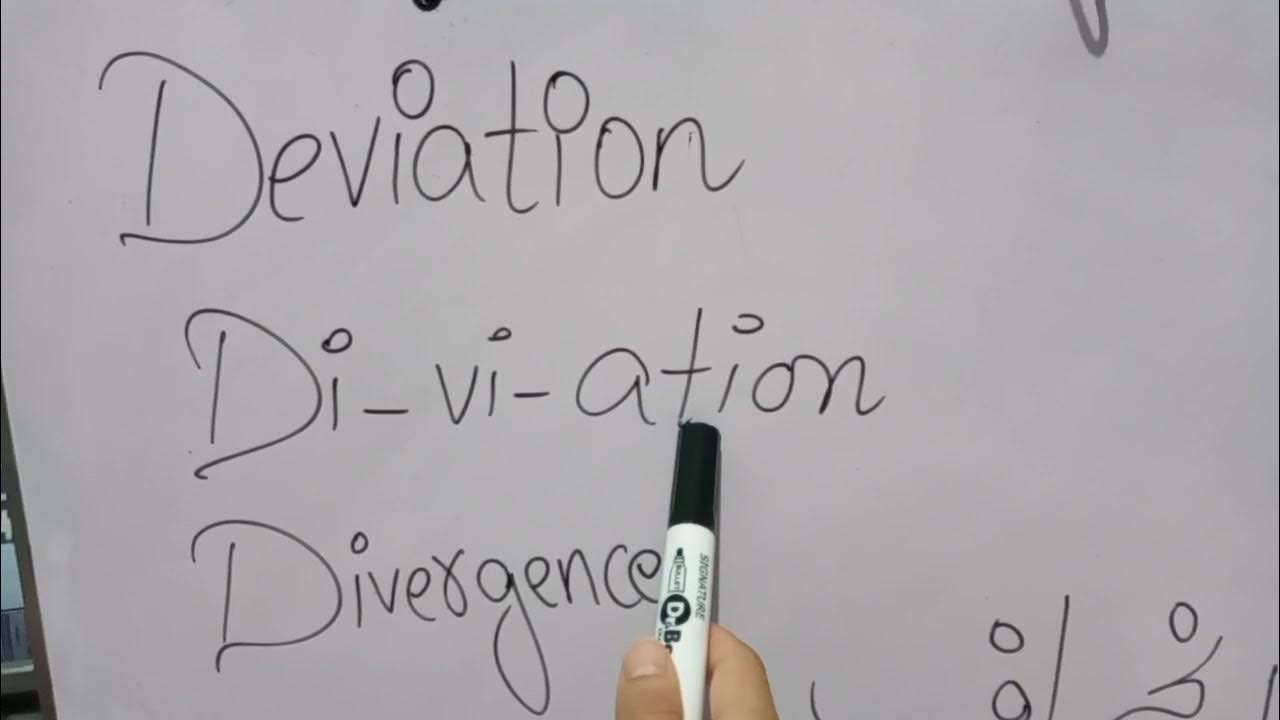 Deviation
Di-vi-ation
Divergence
SIGNATURE
BULLET